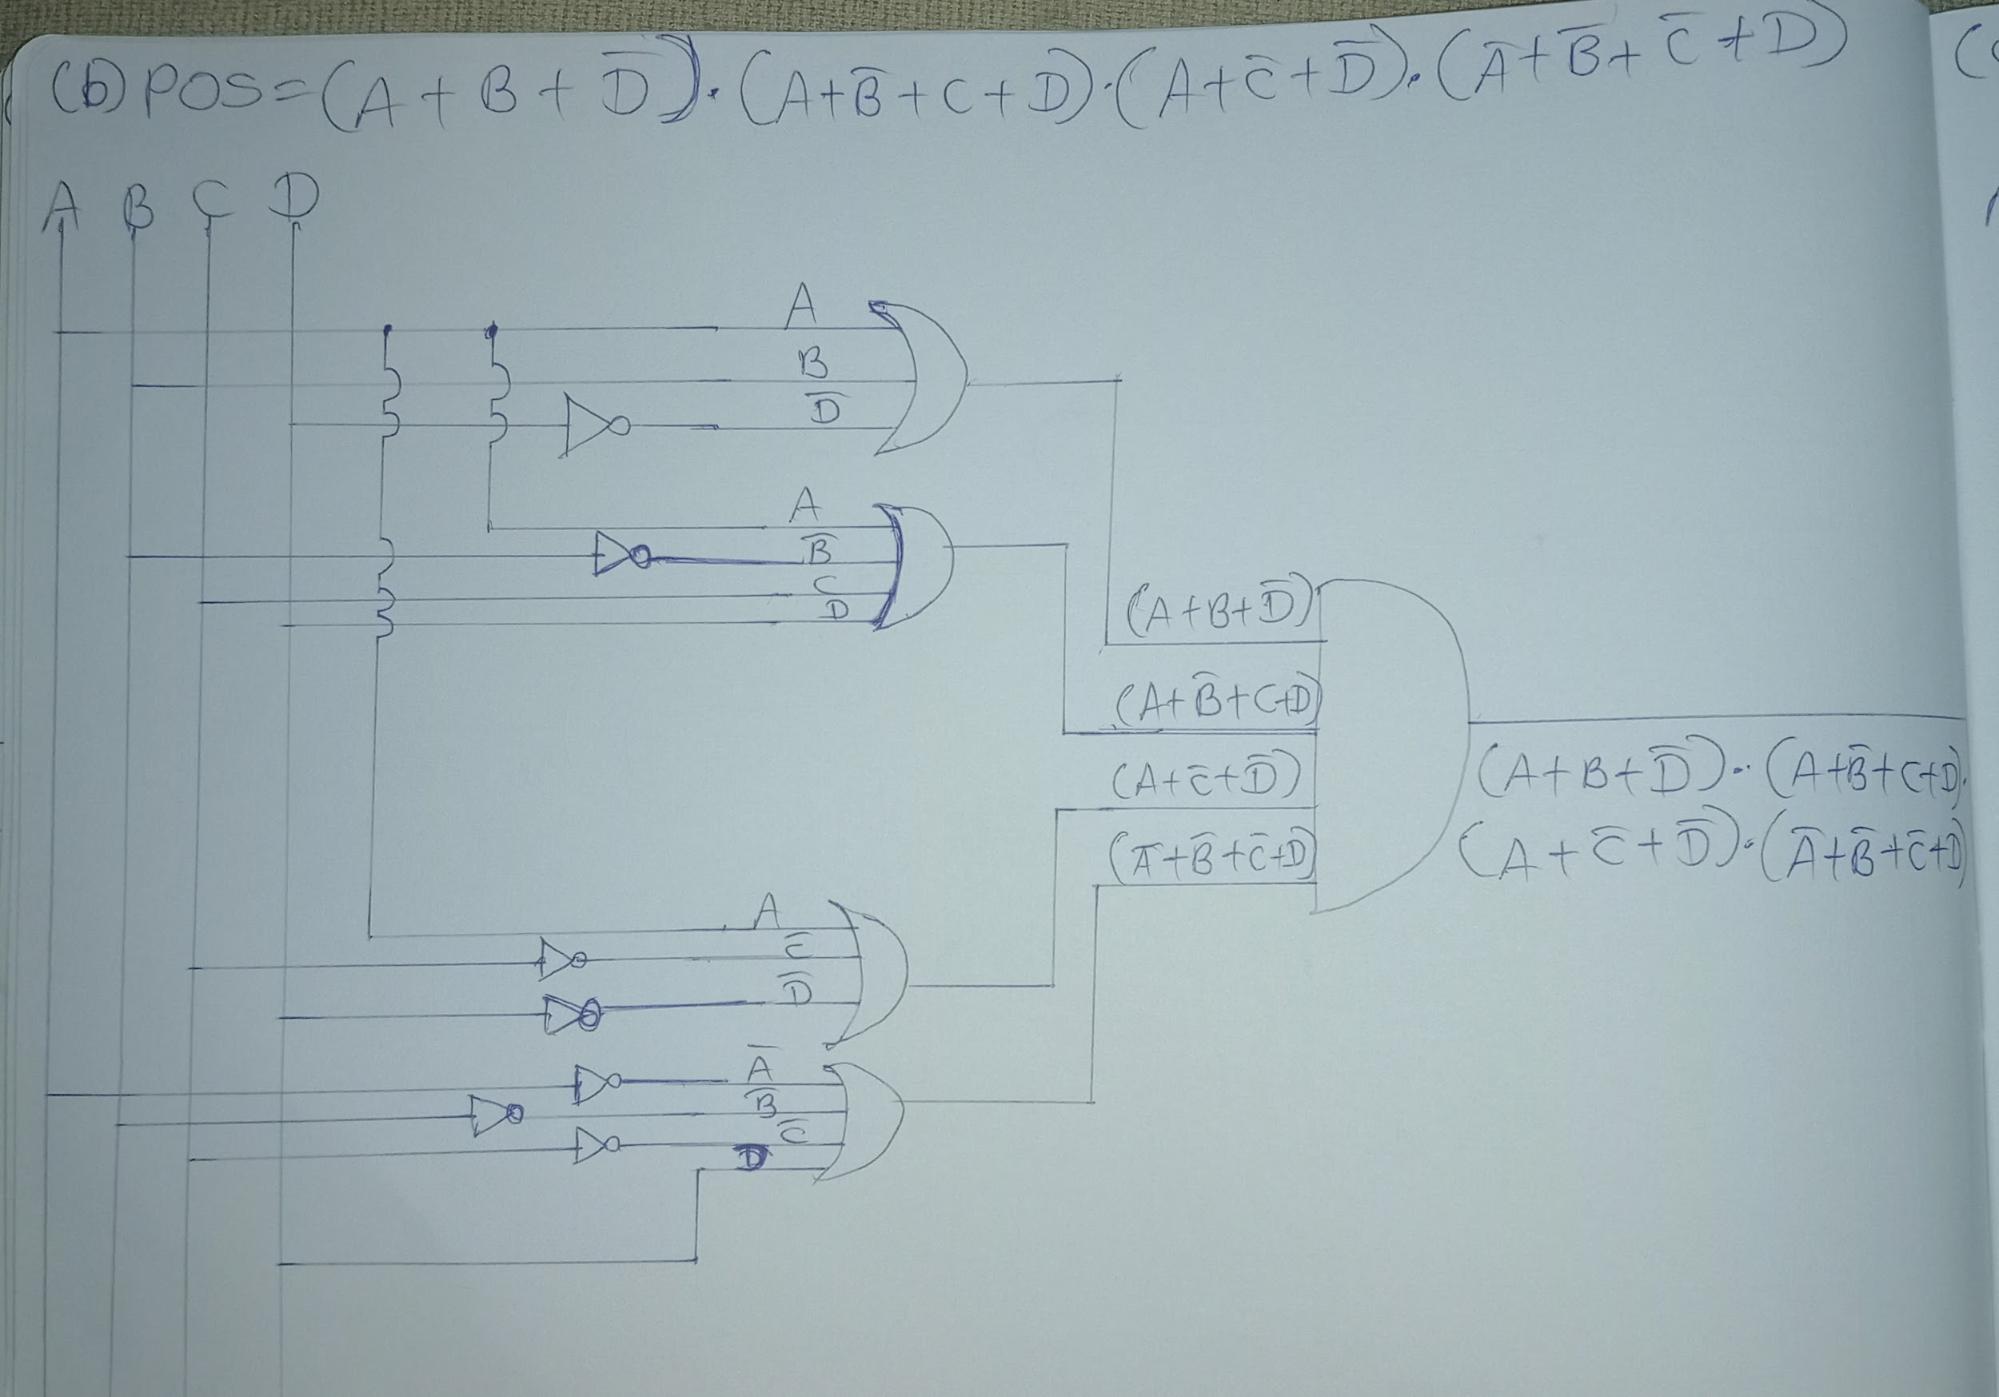 (b) POS = (A + B + D̅) · (A + B̅ + C + D) · (A + C̅ + D̅) · (A̅ + B̅ + C̅ + D)
A B C D
A
B
D̅
A
B̅
C
D
(A + B + D̅)
(A + B̅ + C + D)
(A + C̅ + D̅)
(A̅ + B̅ + C̅ + D)
(A + B + D̅) · (A + B̅ + C + D) ·
(A + C̅ + D̅) · (A̅ + B̅ + C̅ + D)
A
C̅
D̅
A̅
B̅
C̅
D